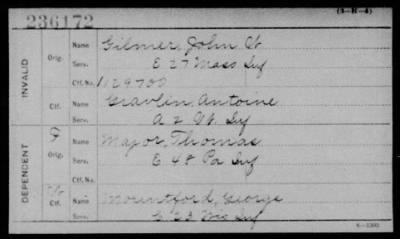 (3-H-4)
236172
INVALID
Orig. Name Gilmer, John W.
Serv. E 27 Mass Inf
Ctf. No. 1129700
Ctf. Name Gravlin, Antoine
Serv. A 2 Vt. Inf
DEPENDENT
Orig. Name Major, Thomas
Serv. E 48 Pa Inf
Ctf. No.
Ctf. Name Mountford, George
Serv. 23 Wis Inf